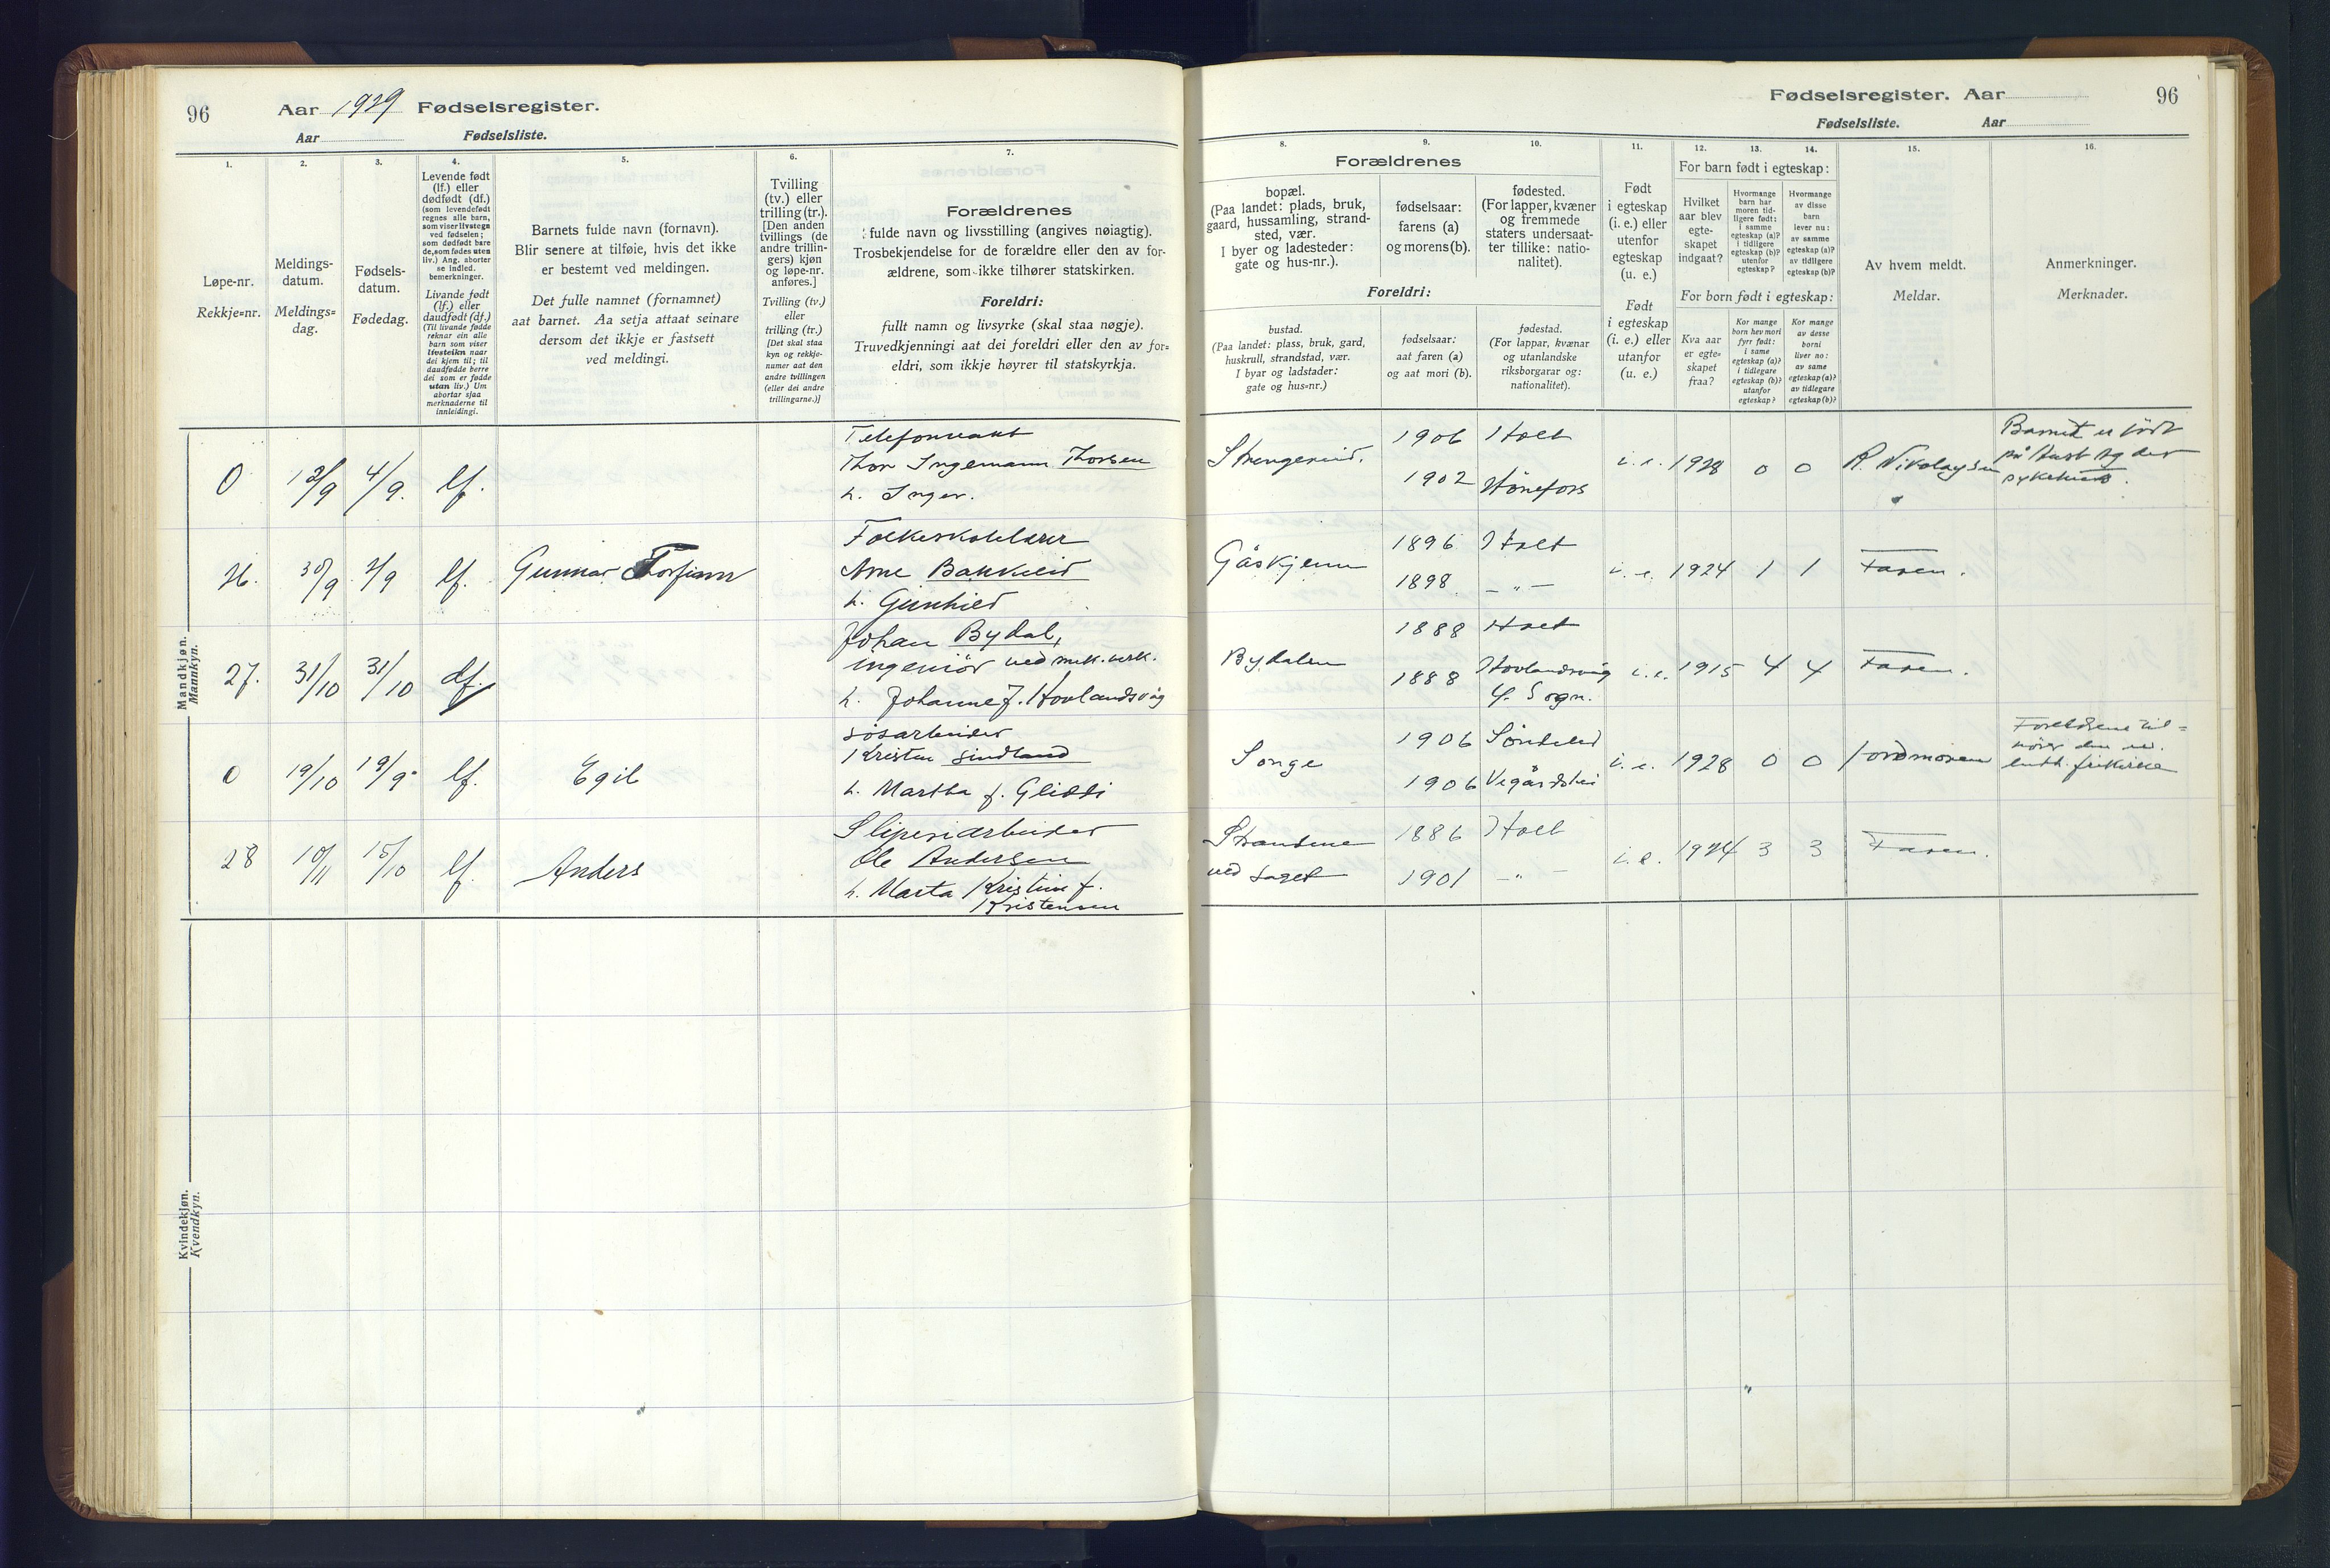 96
Aar 1929 Fødselsregister.
Aar Fødselsliste.
1.
2.
3.
4.
5.
6.
7.
Løpe-nr.
Rekkje=nr.
Meldings-
datum.
Meldings=
dag.
Fødsels-
datum.
Fødedag.
Levende født
(lf.) eller
dødfødt (df.)
(som levendefødt
regnes alle barn,
som viser livstegn
ved fødselen;
som dødfødt bare
de, som fødes uten
liv.) Ang. aborter
se indled.
bemerkninger.
Livande født
(lf.) eller
daudfødt (df.)
(Til livande fødde
reknar ein alle
barn som viser
livsteikn naar
dei kjem til; til
daudfødde berre
dei som er fødde
utan liv.) Um
abortar sjaa
merknaderne til
innleidingi.
Barnets fulde navn (fornavn).
Blir senere at tilføie, hvis det ikke
er bestemt ved meldingen.
Det fulle namnet (fornamnet)
aat barnet. Aa setja attaat seinare
dersom det ikkje er fastsett
ved meldingi.
Tvilling
(tv.) eller
trilling (tr.).
[Den anden
tvillings (de
andre trillin-
gers) kjøn
og løpe-nr.
anføres.]
Tvilling (tv.)
eller
trilling (tr.)
[Det skal staa
kyn og rekkje-
numer aat den
andre tvillingen
(eller dei andre
trillingarne.)]
Forældrenes
fulde navn og livsstilling (angives nøiagtig).
Trosbekjendelse for de forældre eller den av for-
ældrene, som ikke tilhører statskirken.
Foreldri:
fullt namn og livsyrke (skal staa nøgje).
Truvedkjenningi aat dei foreldri eller den av for=
eldri, som ikkje høyrer til statskyrkja.
Mandkjøn.
Mannkyn.
0 12/9 4/9. lf.
Telefonvakt
Thor Ingemann Thorsen
h. Inger.
26. 30/9 2/9 lf. Gunnar Thorfinn
Folkeskolelærer
Arne Bakkeeid
h. Gunhild
27. 31/10 31/10 df.
Johan Bydal,
ingeniör ved mek. verk.
h. Johanne f. Hovlandsvåg
0 19/10 19/9 lf. Egil
Kristen Sindland
h. Martha f. Gliddi
28 10/11 15/10 lf. Anders
Sliperiarbeider
Ole Andersen
h. Marta Kristine f.
Kristensen
Kvindekjøn.
Kvendkyn.
Fødselsregister. Aar 96
Fødselsliste. Aar
8.
9.
10.
11.
12.
13.
14.
15.
16.
Forældrenes
bopæl.
(Paa landet: plads, bruk,
gaard, hussamling, strand-
sted, vær.
I byer og ladesteder:
gate og hus-nr.).
fødselsaar:
farens (a)
og morens (b).
fødested.
(For lapper, kvæner
og fremmede
staters undersaat-
ter tillike: natio-
nalitet).
Foreldri:
bustad.
(Paa landet: plass, bruk, gard,
huskrull, strandstad, vær.
I byar og ladstader:
gate og hus-nr.)
fødselsaar:
aat faren (a)
og aat mori (b).
fødestad.
(For lappar, kvænar
og utanlandske
riksborgarar og:
nationalitet).
Født
i egteskap
(i. e.) eller
utenfor
egteskap
(u. e.)
Født
i egteskap
(i. e.) eller
utanfor
(u. e.)
For barn født i egteskap:
Hvilket
aar blev
egte-
skapet
indgaat?
Hvormange
barn har
moren tid-
ligere født:
i samme
egteskap (a)?
i tidligere
egteskap (b)?
utenfor
egteskap?
Hvormange
av disse
barn
lever nu:
av samme
egteskap (a)?
av tidligere
egteskap (b)?
For born født i egteskap:
Kva aar
er egte=
skapet
fraa?
Kor mange
born hev mori
fyrr født:
i same
egteskap (a)?
i tidlegare
egteskap (b)?
utanfor
egteskap?
Kor mange
av desse
borni
liver no:
av same
egteskap (a)?
av tidlegare
egteskap (b)?
Av hvem meldt.
Meldar.
Anmerkninger.
Merknader.
Strengereid.
1906 Holt
1902 Hönefors
i. e. 1928 0 0 R. Nikolaysen
Barnet er födt
på Aust Agder
sykehus.
Gåskjenn
1896 Holt
1898 — " —
i. e. 1924 1 1 Faren.
Bydalen
1888 Holt
1888 Hovlandsvåg
Y. Sogn.
i. e. 1915 4 4 Faren.
Songe
1906 Söndeled
1906 Vegårdshei
i. e. 1928 0 0 Jordmoren
Foreldrene til=
hører den ev.
luth. frikirke
Strandene
ved Saget
1886 Holt
1901 — " —
i. e. 1924 3 3 Faren.